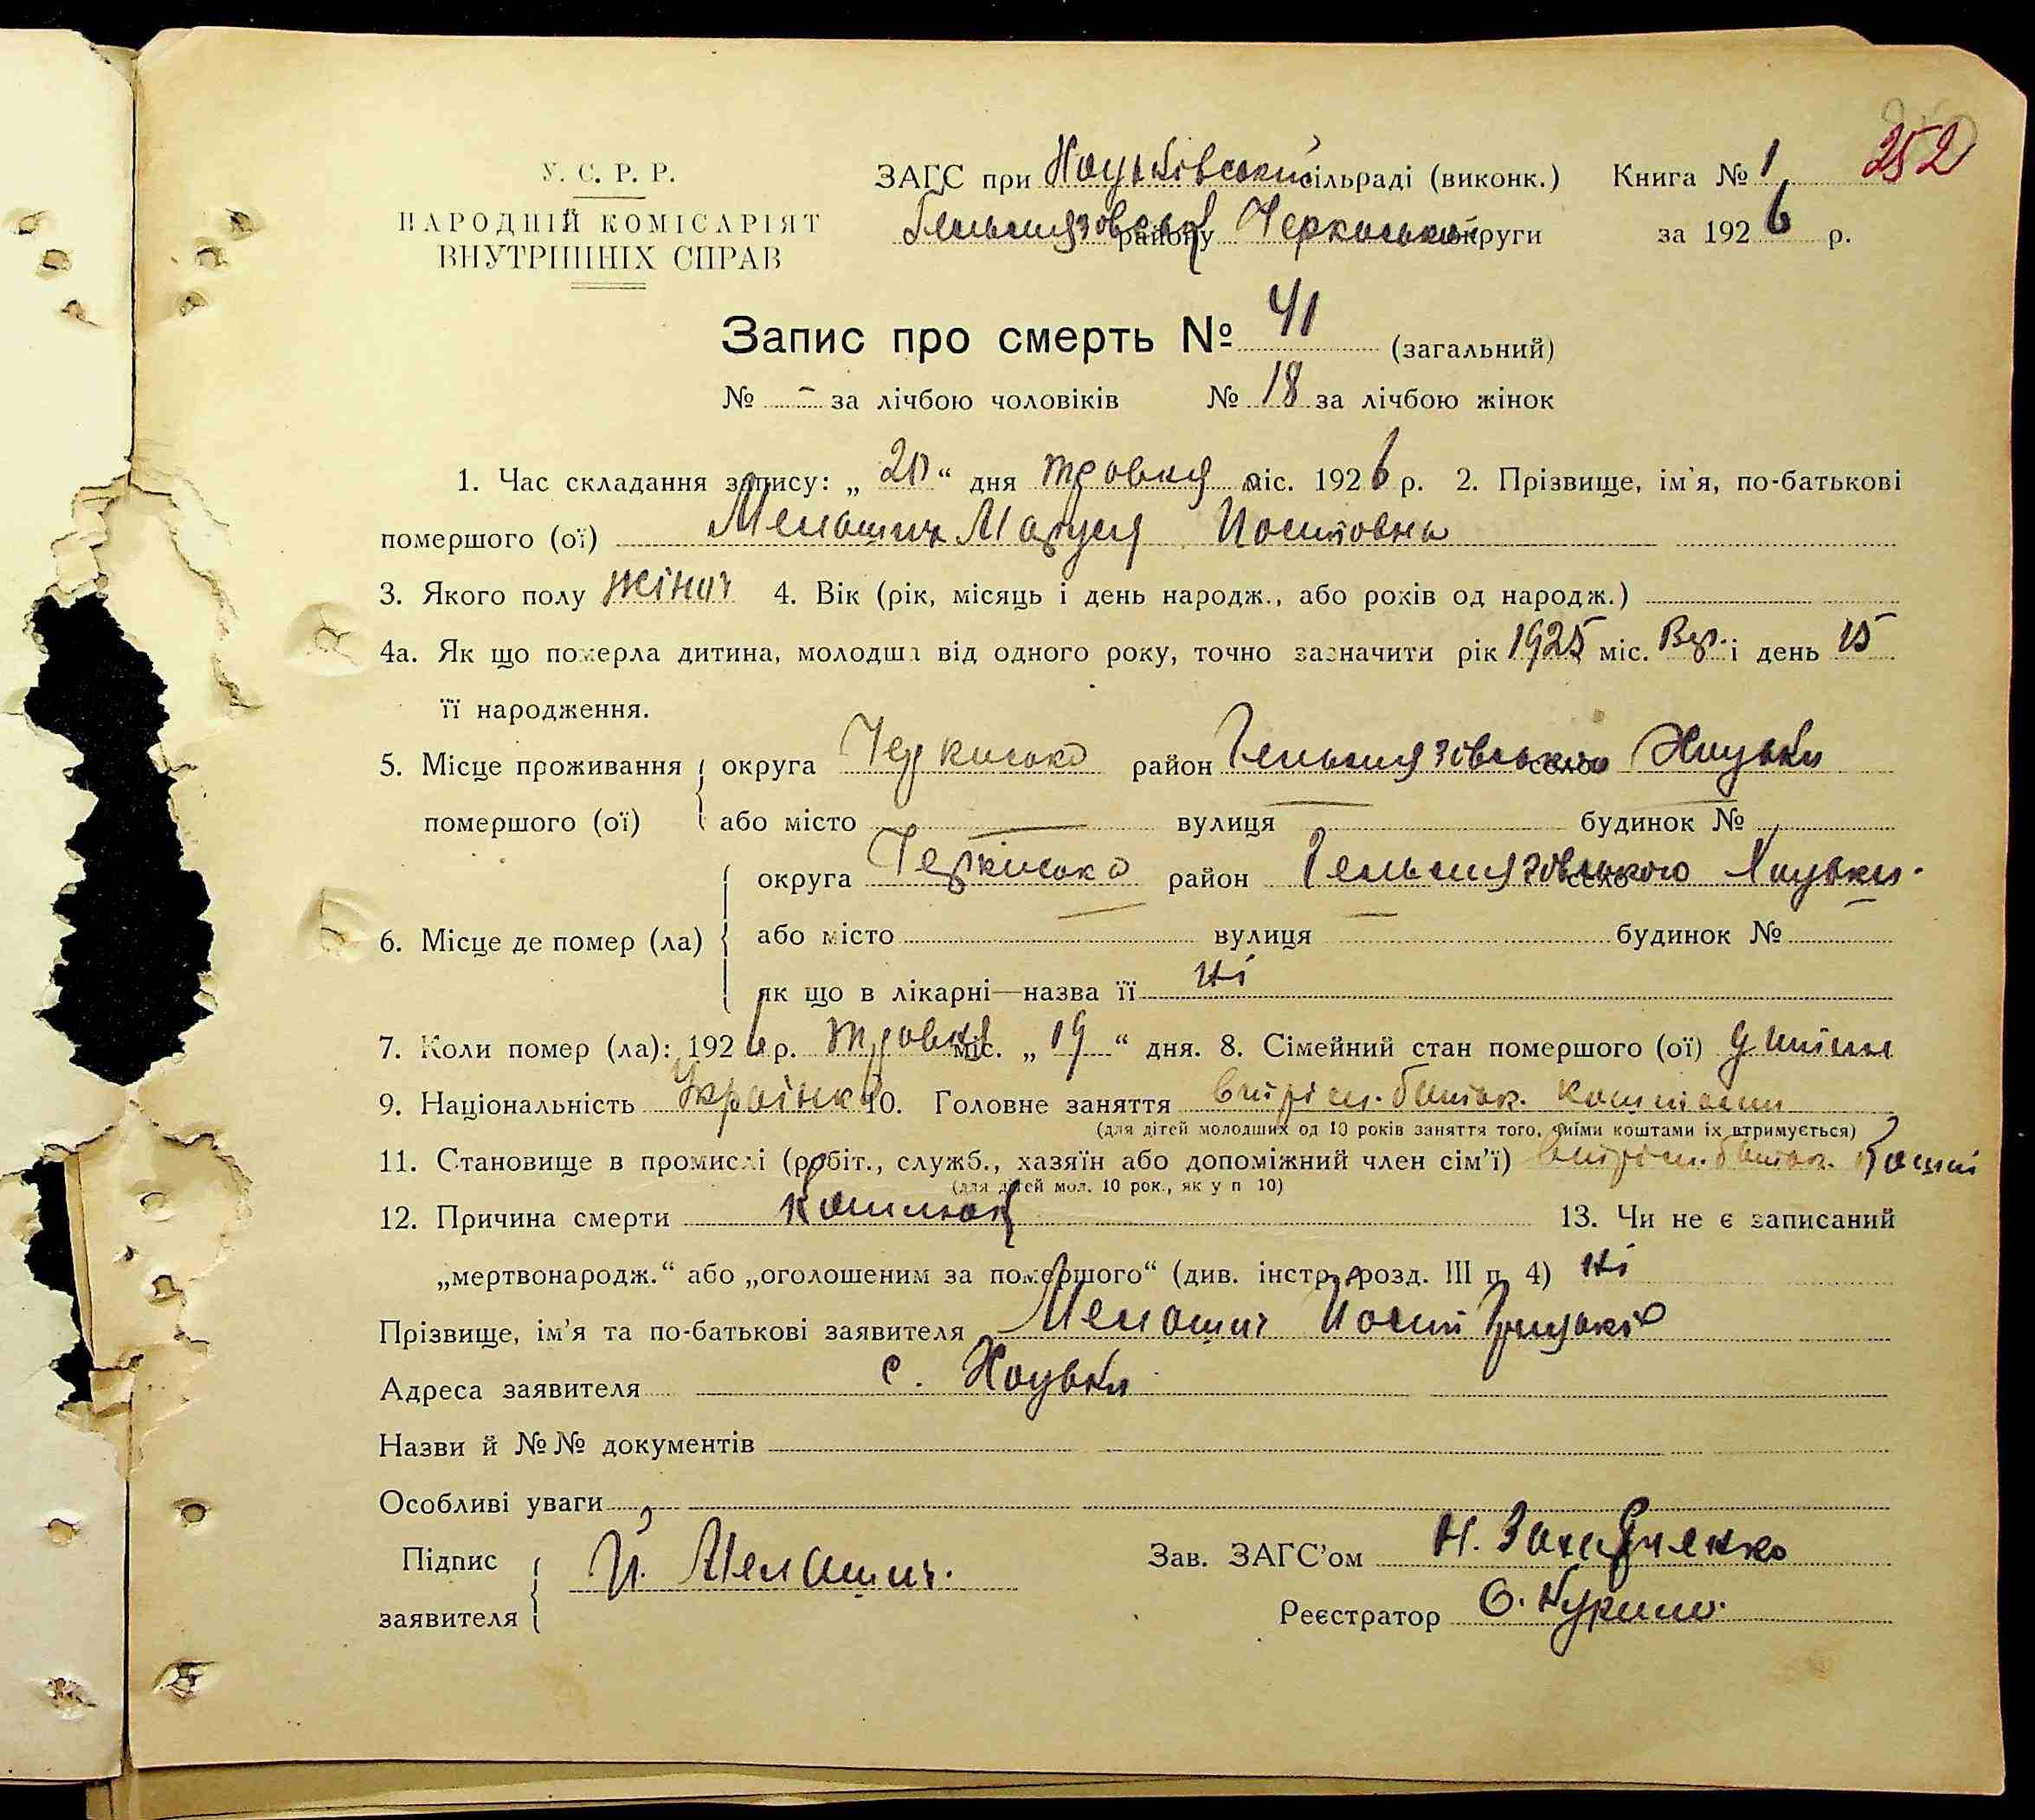 252
У. С. Р. Р.
НАРОДНІЙ КОМІСАРІЯТ
ВНУТРІШНІХ СПРАВ
ЗАГС при Хоцьківській сільраді (виконк.) Книга № 1
Гельмязовськ району Черкаської округи за 1926 р.
Запис про смерть № 41 (загальний)
№ - за лічбою чоловіків № 18 за лічбою жінок
1. Час складання запису: „ 20 “ дня травня міс. 1926 р. 2. Прізвище, ім'я, по-батькові
помершого (ої) Меламич Маруся Йосиповна
3. Якого полу жіноч 4. Вік (рік, місяць і день народж., або років од народж.)
4а. Як що померла дитина, молодша від одного року, точно зазначити рік 1925 міс. Вер. і день 15
її народження.
5. Місце проживання округа Черкаська район Гельмязовського село Хоцьки
помершого (ої) або місто — вулиця — будинок № —
округа Черкаська район Гельмязовського село Хоцьки.
6. Місце де помер (ла) або місто — вулиця — будинок № —
як що в лікарні—назва її ні
7. Коли помер (ла): 1926 р. травня міс. „ 19 “ дня. 8. Сімейний стан помершого (ої)
9. Національність Українка 10. Головне заняття батьк. коштами
(для дітей молодших од 10 років заняття того, чиїми коштами їх втримується)
11. Становище в промислі (робіт., служб., хазяїн або допоміжний член сім'ї) батьк. кошт
(для дітей мол. 10 рок., як у п 10)
12. Причина смерти кашлюк 13. Чи не є записаний
„мертвонародж.“ або „оголошеним за помершого“ (див. інстр. розд. III п. 4) ні
Прізвище, ім'я та по-батькові заявителя Меламич Йосип Грицьків
Адреса заявителя с. Хоцьки
Назви й №№ документів
Особливі уваги
Підпис Й. Меламич. Зав. ЗАГС'ом
заявителя Реєстратор